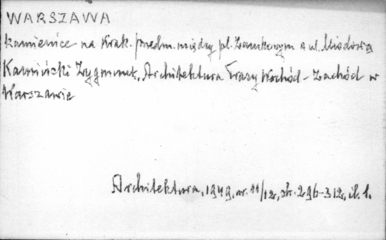 WARSZAWA
kamienice na Krak. Przedm. między pl. Zamkowym a ul. Miodową
Kamiński Zygmunt, Architektura Trasy Wschód - Zachód w
Warszawie
Architektura, 1949, nr. 11/12, str. 296-312, il. 1.